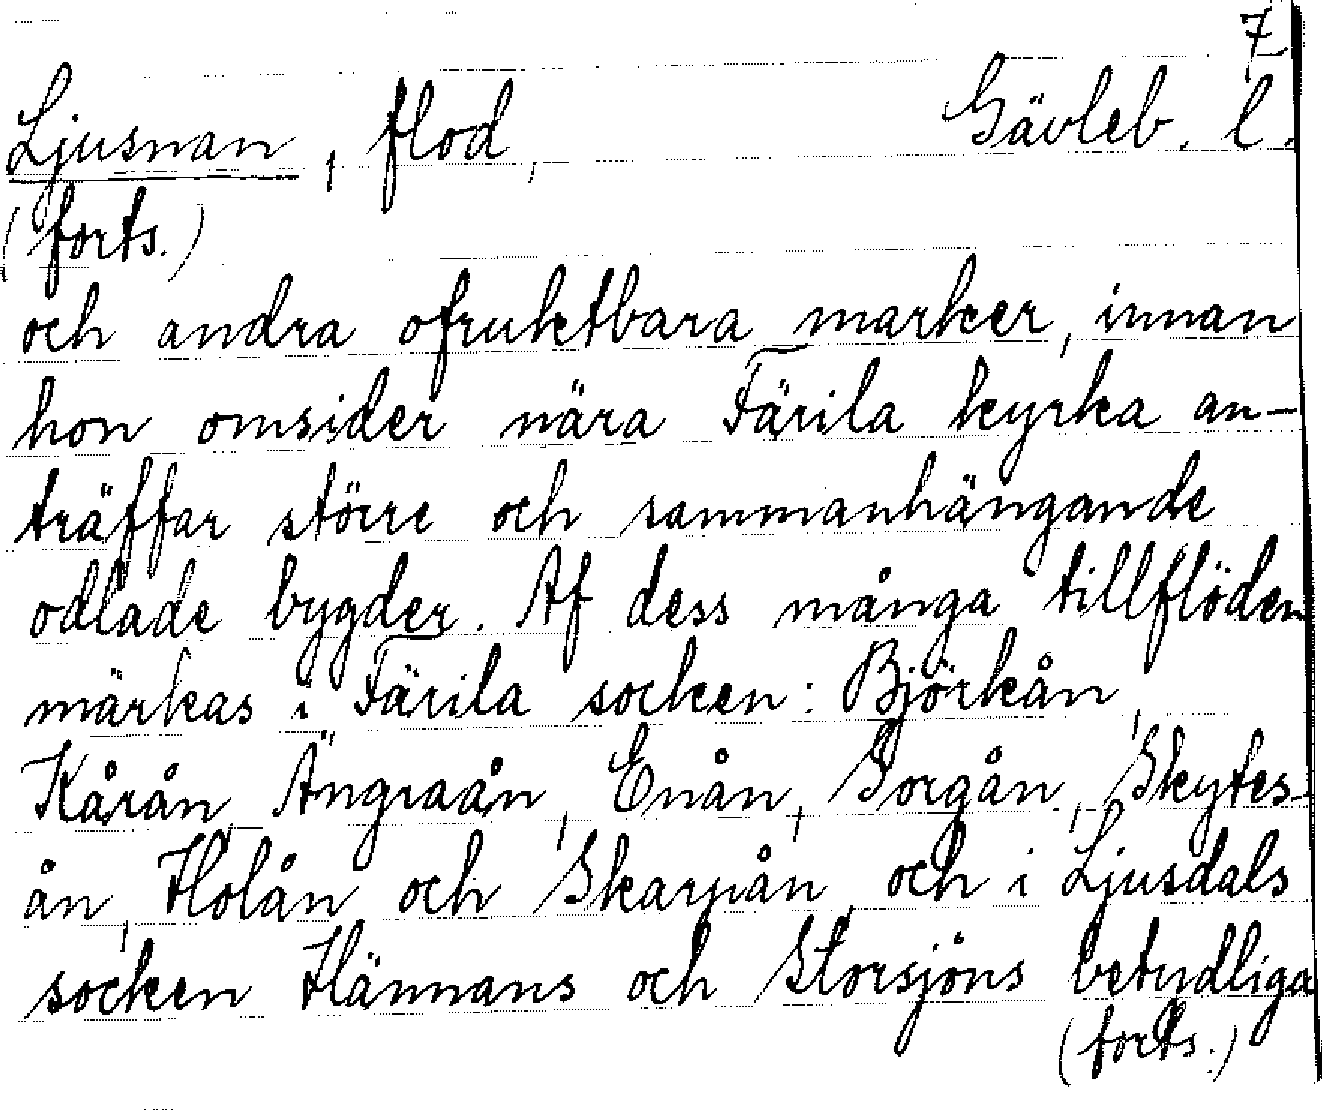 7
Ljusnan, flod, Gävleb. l.
(forts.)
och andra ofruktbara marker, innan
hon omsider nära Färila kyrka an-
träffar större och sammanhängande
odlade bygder. Af dess många tillflöden
märkas i Färila socken: Björkån,
Kårån, Ängraån, Enån, Gorgån, Skytes-
ån, Holån och Skarpån, och i Ljusdals
socken Hännans och Storsjöns betydliga
(forts.)